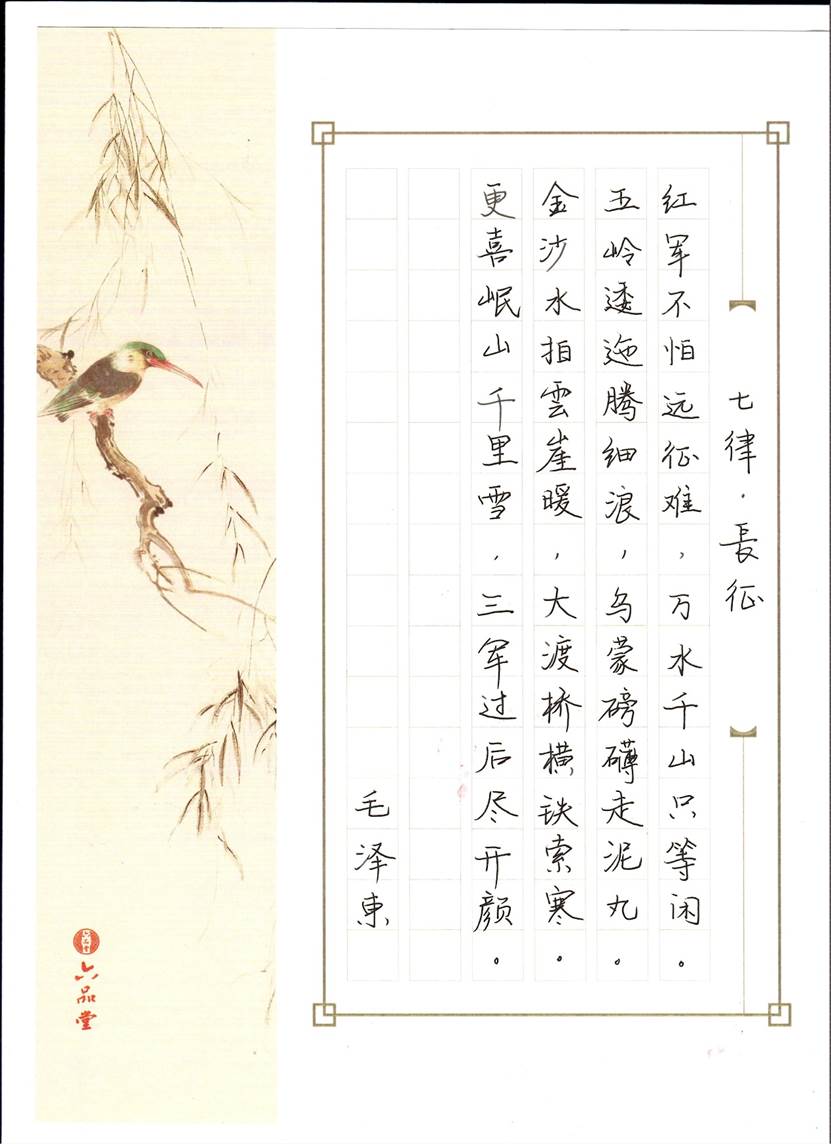 七律·長征
红军不怕远征难，万水千山只等闲。
五岭逶迤腾细浪，乌蒙磅礴走泥丸。
金沙水拍雲崖暖，大渡桥横铁索寒。
更喜岷山千里雪，三军过后尽开颜。
毛泽東
六品堂